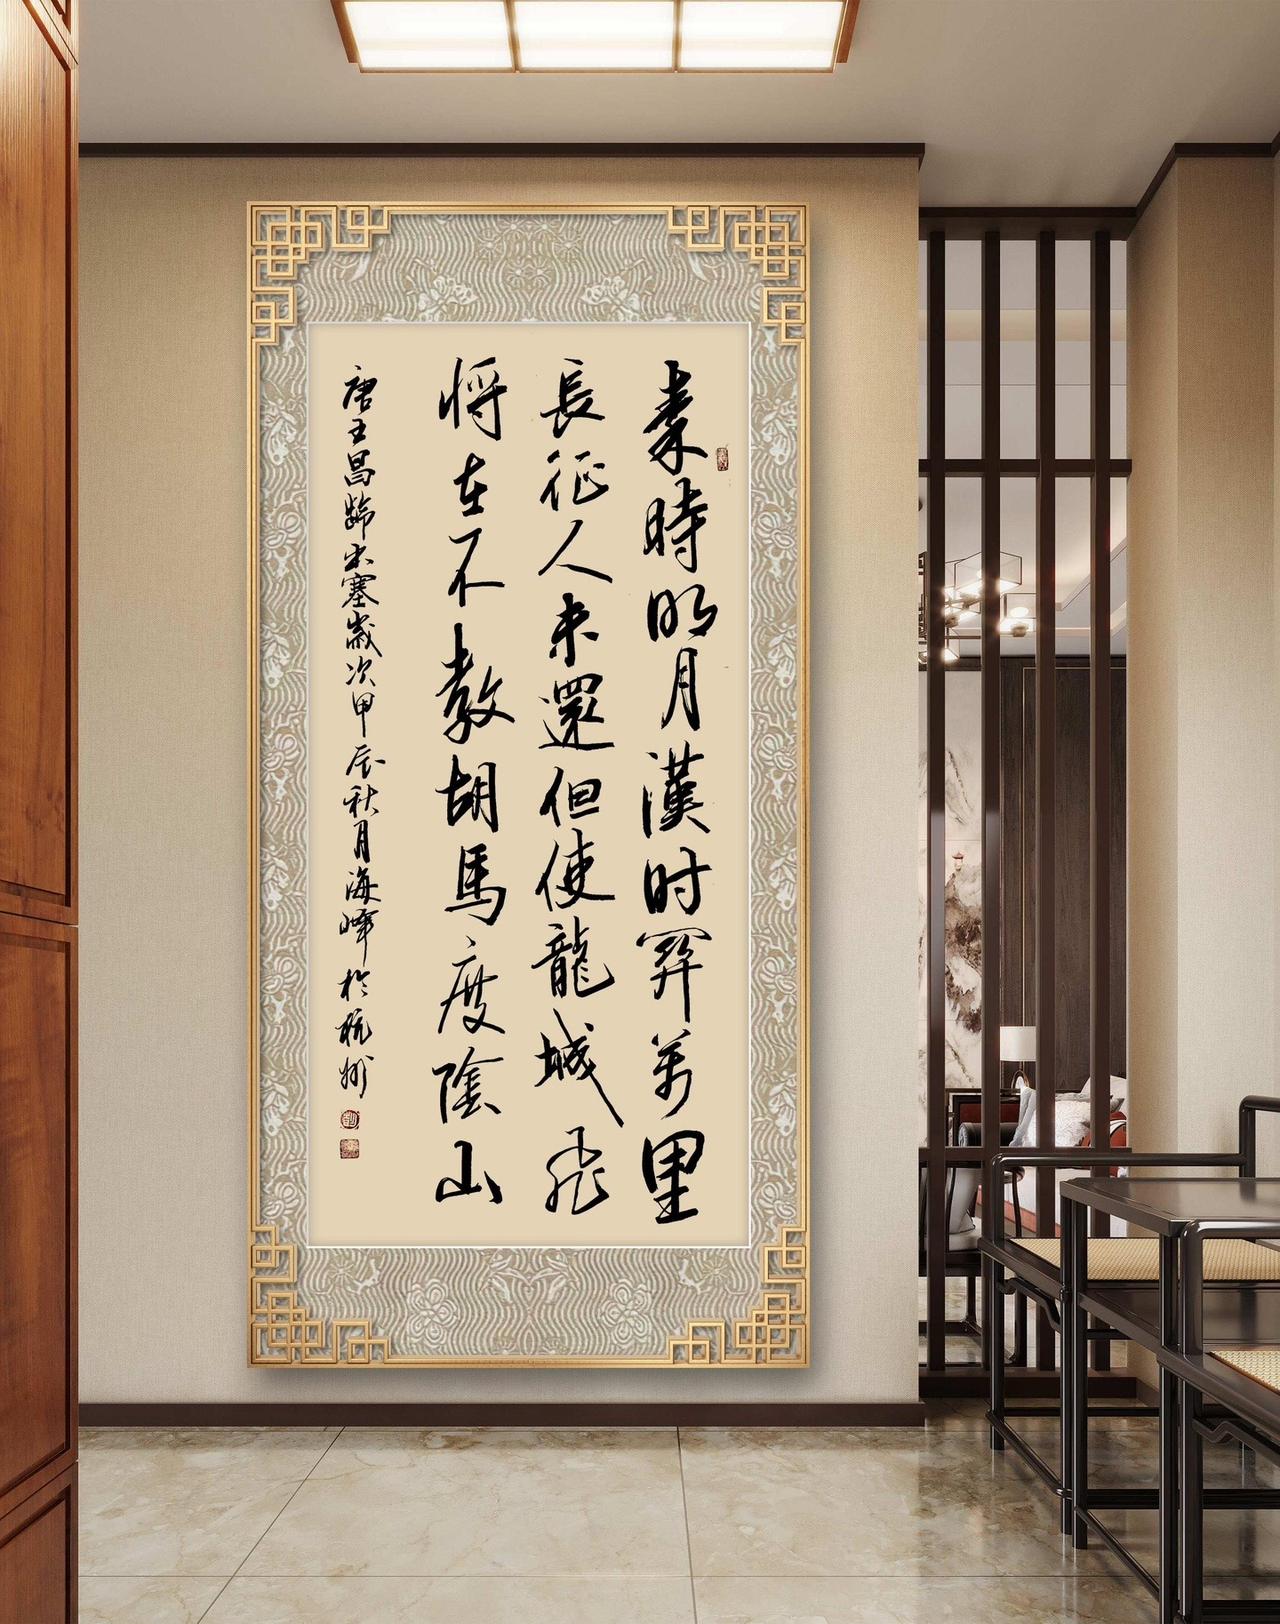 秦時明月漢时関萬里
長征人未還但使龍城飛
将在不教胡馬度陰山
唐王昌齡出塞歲次甲辰秋月海峰於杭州